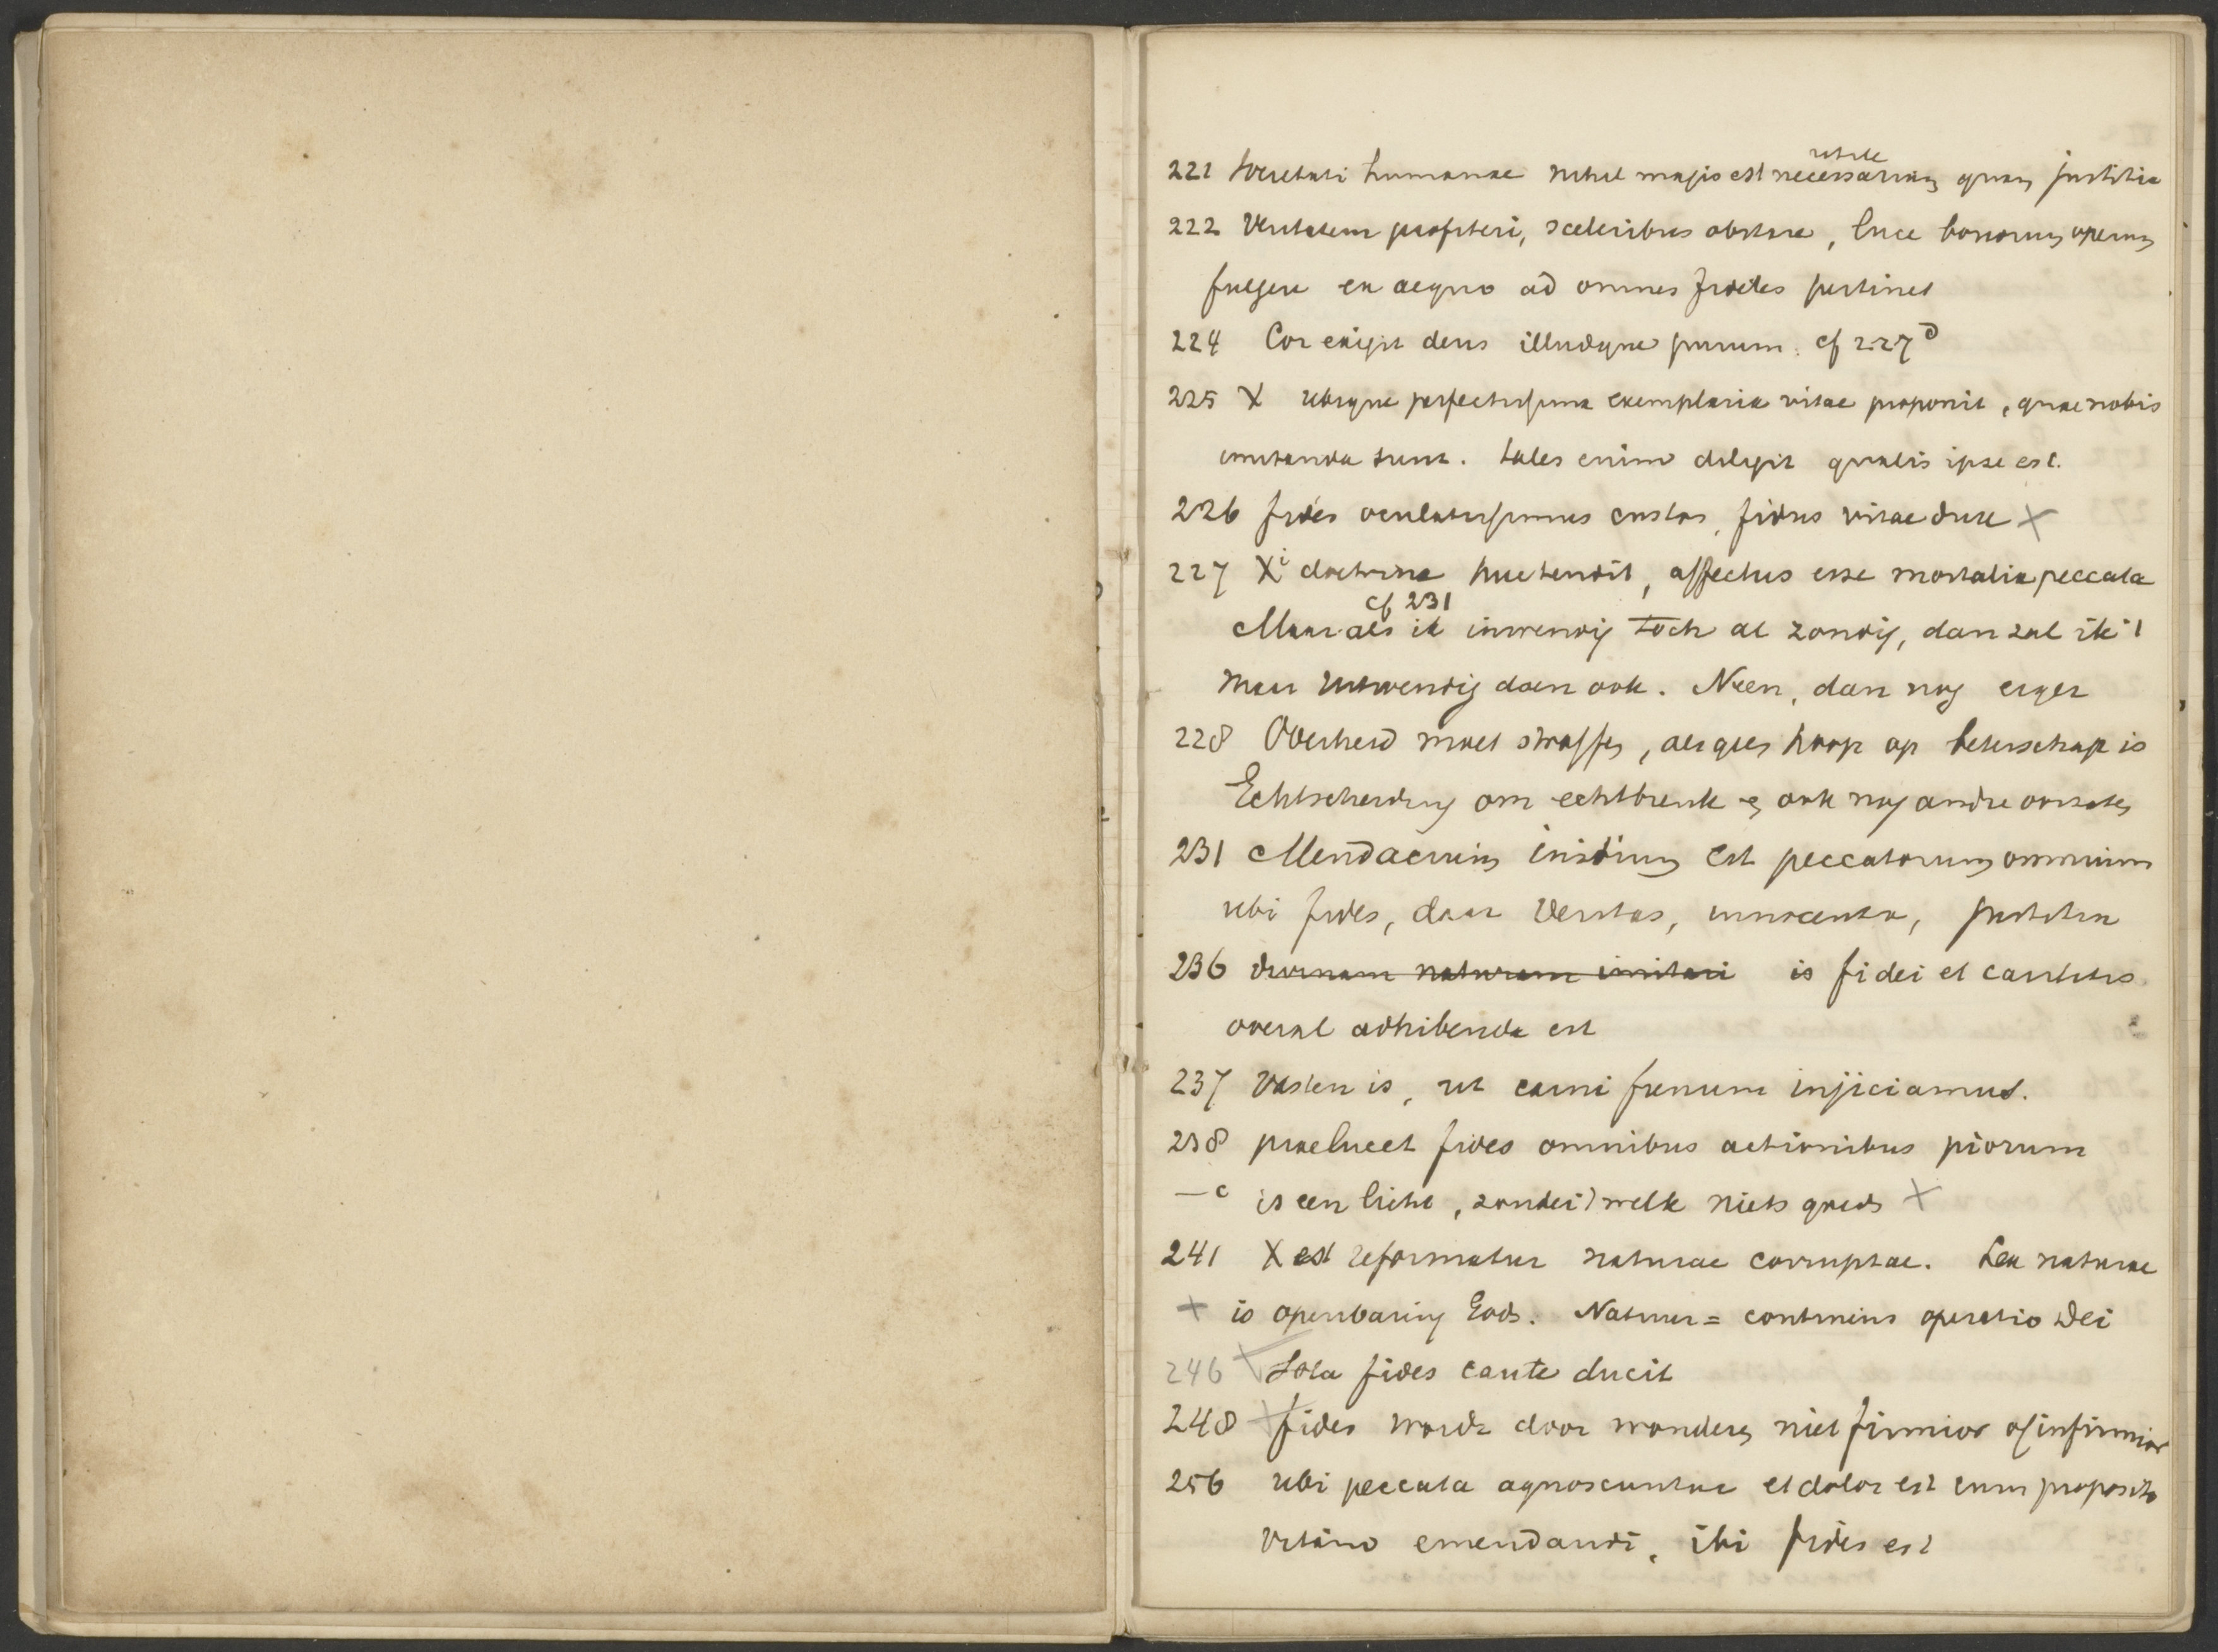 utile
221 Societati humanae nihil magis est necessarium quam justitia
222 Veritatem profiteri, sceleribus obstare, luce bonorum operum
fulgere ex aequo ad omnes fideles pertinet
224 Cor exigit deus illudque purum. cf 227 d
225 X ubique perfectissima exemplaria vitae proponit, quae nobis
imitanda sunt. tales enim diligit qualis ipse est.
226 fides oculatissimus custos, fidus vitae dux X
227 Xi doctrina huc tendit, affectus esse mortalia peccata
cf 231
Maar als ik inwendig toch al zondig, dan zal ik 't
maar uitwendig doen ook. Neen, dan nog erger
228 Overheid moet straffen, als geen hoop op beterschap is
Echtscheiding om echtbreuk en ook nog andre oorzaken
231 Mendacium initium est peccatorum omnium
ubi fides, daar veritas, innocentia, justitia
236 divinam naturam imitari is fidei et caritatis
overal adhibenda est
237 Vasten is, ut carni frenum injiciamus.
238 praelucet fides omnibus actionibus piorum
— c is een licht, zonder 't welk niets goeds X
241 X est reformatur naturae corruptae. Lex naturae
+ is openbaring Gods. Natuur = continens operatio Dei
246 Sola fides caute ducit
248 + fides wordt door wonderen niet firmior of infirmior
256 ubi peccata agnoscuntur et dolor est cum proposito
vitam emendandi, ibi fides est